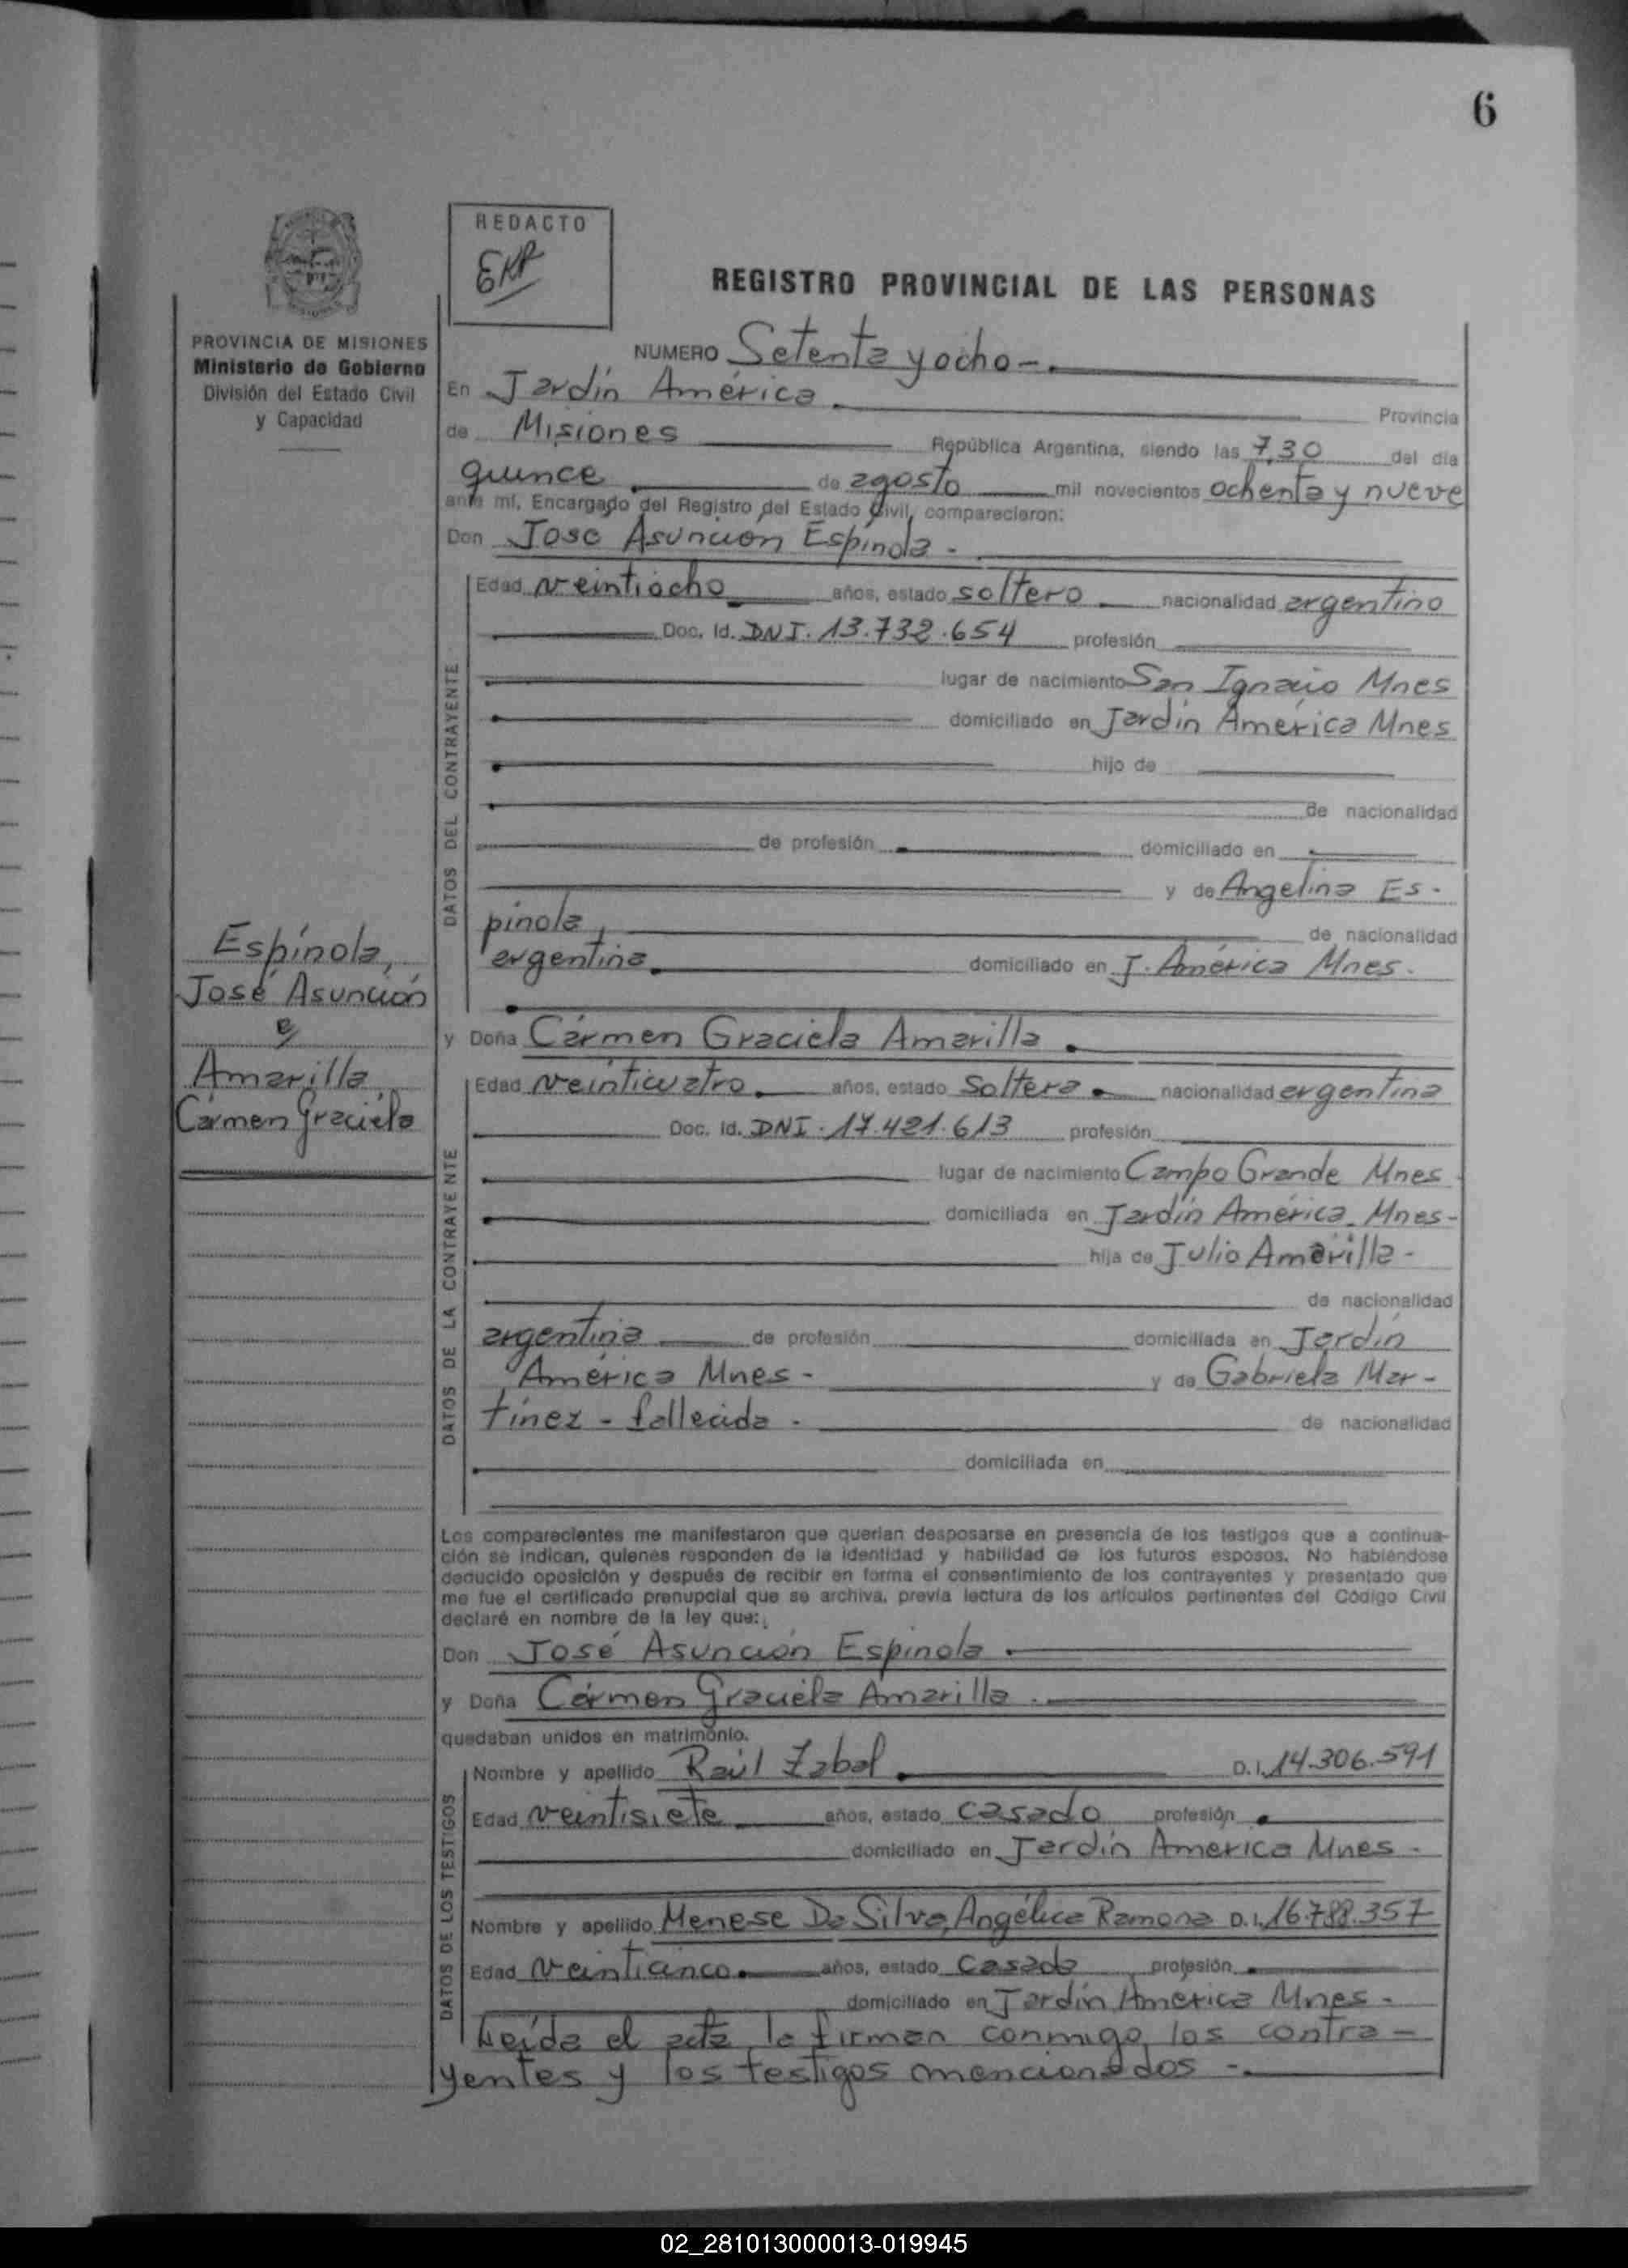 6
REDACTO
REGISTRO PROVINCIAL DE LAS PERSONAS
PROVINCIA DE MISIONES
Ministerio de Gobierno
División del Estado Civil
y Capacidad
NUMERO Setenta y ocho -.
En Jardín América Provincia
de Misiones República Argentina, siendo las 7,30 del día
quince de agosto mil novecientos ochenta y nueve
ante mí, Encargado del Registro del Estado Civil, comparecieron:
Don José Asunción Espínola -
DATOS DEL CONTRAYENTE
Edad veintiocho años, estado soltero nacionalidad argentino
Doc. Id. DNI. 13.732.654 profesión
lugar de nacimiento San Ignacio Mnes
domiciliado en Jardín América Mnes
hijo de
de nacionalidad
de profesión domiciliado en
y de Angelina Es-
pínola, de nacionalidad
argentina. domiciliado en J. América Mnes.
Espínola,
José Asunción
e
Amarilla,
Cármen Graciela
y Doña Cármen Graciela Amarilla.
DATOS DE LA CONTRAYENTE
Edad veinticuatro años, estado soltera nacionalidad argentina
Doc. Id. DNI. 17.421.613 profesión
lugar de nacimiento Campo Grande Mnes
domiciliada en Jardín América Mnes-
hija de Julio Amarilla -
de nacionalidad
argentina de profesión domiciliada en Jardín
América Mnes - y de Gabriela Mar-
tínez - fallecida - de nacionalidad
domiciliada en
Los comparecientes me manifestaron que querían desposarse en presencia de los testigos que a continua-
ción se indican, quienes responden de la identidad y habilidad de los futuros esposos. No habiéndose
deducido oposición y después de recibir en forma el consentimiento de los contrayentes y presentado que
me fue el certificado prenupcial que se archiva, previa lectura de los artículos pertinentes del Código Civil
declaré en nombre de la ley que:
Don José Asunción Espínola.
y Doña Cármen Graciela Amarilla.
quedaban unidos en matrimonio.
DATOS DE LOS TESTIGOS
Nombre y apellido Raúl Zabal D.I. 14.306.591
Edad veintisiete años, estado casado profesión
domiciliado en Jardín América Mnes -
Nombre y apellido Menese Da Silva, Angélica Ramona D.I. 16.788.357
Edad veinticinco años, estado casada profesión
domiciliado en Jardín América Mnes -
Leída el acta, la firman conmigo los contra-
yentes y los testigos mencionados -.
02_281013000013-019945